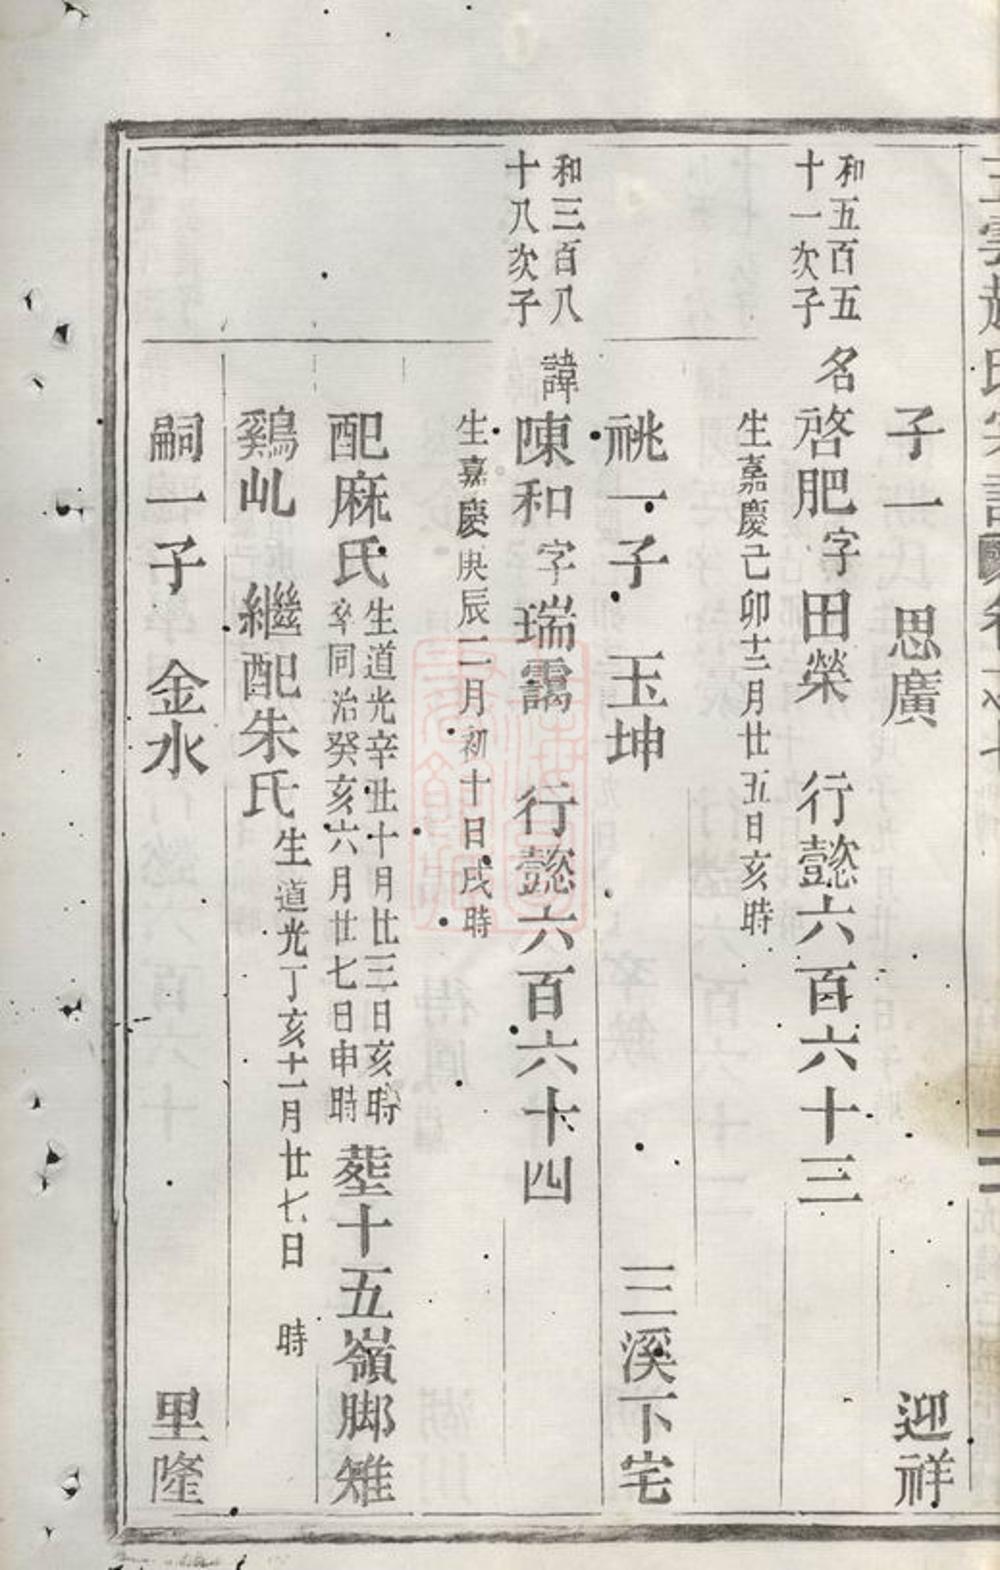 子一 思廣 迎祥
和五百五
十一次子
名啓肥字田榮 行懿六百六十三
生嘉慶己卯十二月廿五日亥時
祧一子 玉坤 三溪下宅
和三百八
十八次子
諱陳和字瑞靄 行懿六百六十四
生嘉慶庚辰二月初十日戌時
配麻氏
生道光辛丑十月廿三日亥時
卒同治癸亥六月廿七日申時
塟十五嶺脚雉
鷄乢 繼配朱氏
生道光丁亥十一月廿七日 時
嗣一子 金水 里隆